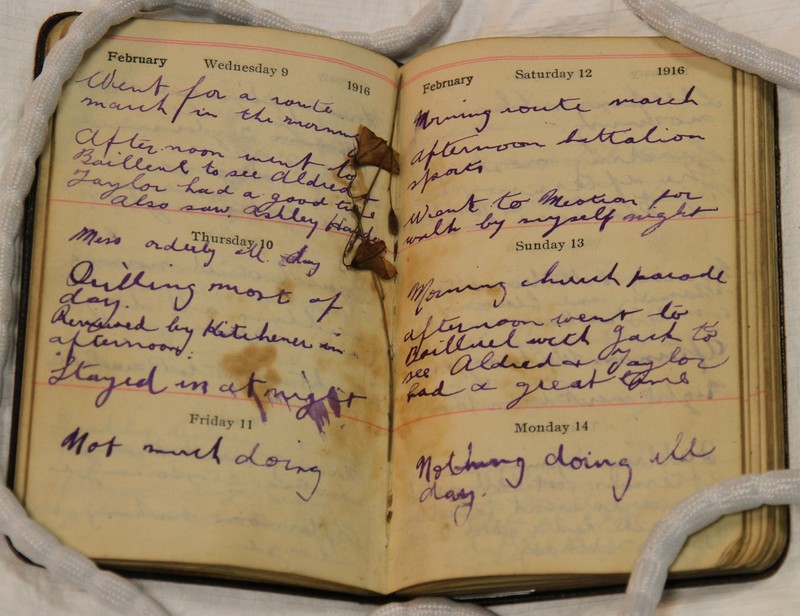 February Wednesday 9 1916
Went for a route
march in the morning
After noon went to
Bailleul to see Aldred +
Taylor had a good time
Also saw Ashley
Thursday 10
Mess orderly all day
Drilling most of
day.
Reviewed by Kitchener in
afternoon.
Stayed in at night
Friday 11
Not much doing
February Saturday 12 1916
Morning route march
afternoon battalion
sports
Went to Meation for
walk by myself night
Sunday 13
Morning church parade
afternoon went to
Baillieul with Jack to
see Aldred + Taylor
had a great time
Monday 14
Nothing doing all
day.